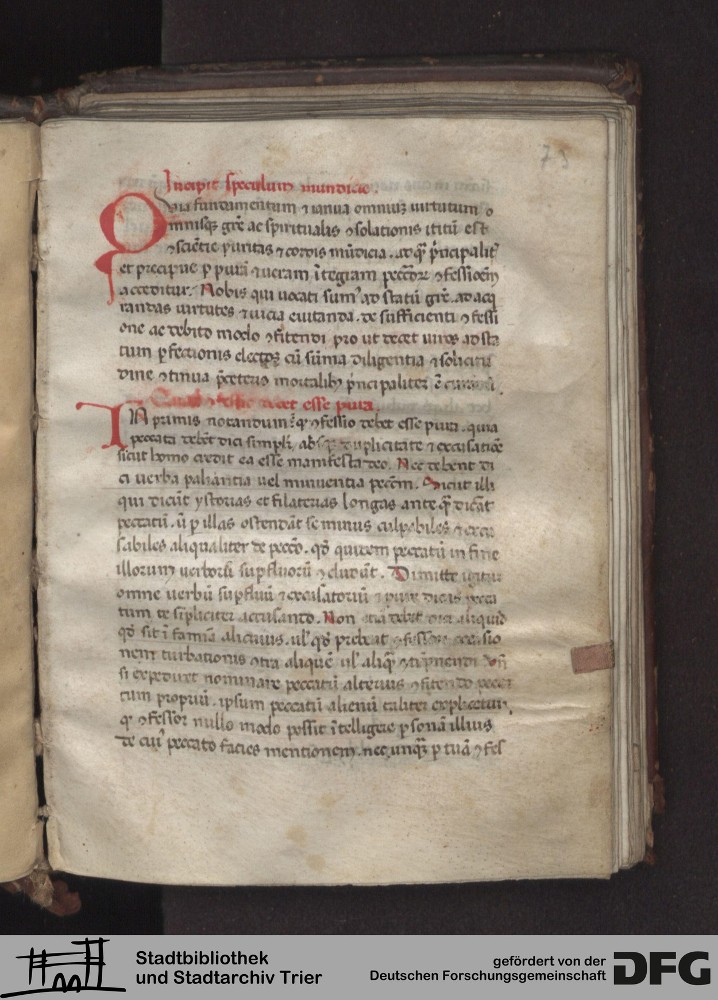 75
Incipit speculum mundicie.
Quia fundamentum ⁊ ianua omniuȝ uirtutum o
mnisqȝ gr̄e ac spiritualis ꝯsolationis īitiū est
ꝯsciētie puritas ⁊ cordis mūdicia. ad qȝ p̄ncipalit᷑
et precipue ꝑ purā ⁊ ueram ītegram pecc̄orȝ ꝯfessioēm
acceditur. Nobis qui uocati sumꝰ ad statū gr̄e. ad acq
rendas uirtutes ⁊ uicia euitanda. de sufficienti ꝯfessi
one ac debito modo ꝯfitendi pro ut decet uiros ad sta
tum ꝑfectionis electos cū sūma diligentia ⁊ solicitu
dine ꝯtinua p̄ceteris mortalibȝ p̄ncipaliter ē
ꝯfessio decet esse pura
IN primis notandum qȝ ꝯfessio debet esse pura. quia
peccata debēt dici simplr̄, absqȝ duplicitate ⁊ excusatiōe
sicut homo credit ea esse manifesta deo. Nec debent di
ci uerba paliantia uel minuentia pecc̄m. Sicut illi
qui dicūt ystorias et filaterias longas ante qȝ dicāt
peccatū. ū ꝑ illas ostendāt se minus culpabiles ⁊ excu
sabiles aliqualiter de pecc̄o. qd̄ quidem peccatū in fine
illorum uerborū suꝑfluorū ꝯcludūt. Dimitte igitur
omne uerbū suꝑfluū ⁊ excusatoriū ⁊ pure dicas pecca
tum te sīpliciter accusando. Non etiā debēt dici aliquid
qd̄ sit ī famiā alicuius. ul᷑ qd̄ prebeat ꝯfessori occasio
nem turbationis ꝯtra aliquē ul᷑ aliqȝ
si expediret nominare peccatū alterius ꝯfitendo pecca
tum propriū. ipsum peccatū alienū taliter explicetur.
qȝ ꝯfessor nullo modo possit ītelligere ꝑsonā illius
de cuiꝰ peccato facies mentionem. nec unqȝ ꝑ tuā ꝯfes
Stadtbibliothek
und Stadtarchiv Trier
gefördert von der
Deutschen Forschungsgemeinschaft
DFG